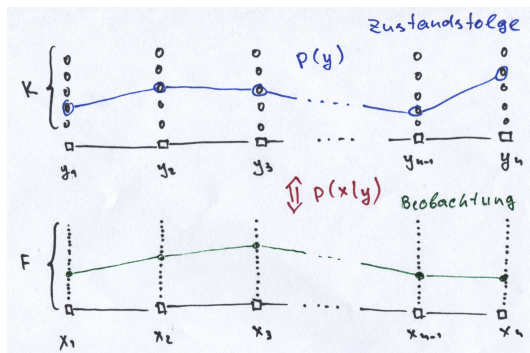 Zustandsfolge
p(y)
K
....
y₁ y₂ y₃ yₙ₋₁ yₙ
⇕ p(x|y)
Beobachtung
F
....
x₁ x₂ x₃ xₙ₋₁ xₙ